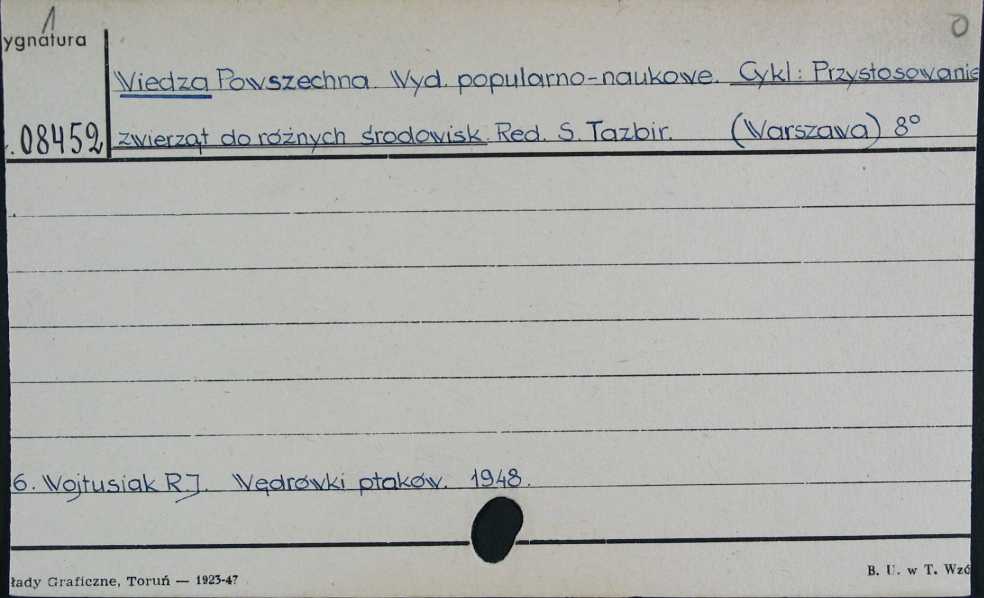 1
0
ygnatura
Wiedza Powszechna. Wyd. popularno-naukowe. Cykl: Przystosowanie
.08452 zwierząt do różnych środowisk. Red. S. Tazbir. (Warszawa) 8°
6. Wojtusiak R.J. Wędrówki ptaków. 1948.
łady Graficzne, Toruń — 1923-47
B. U. w T. Wzó